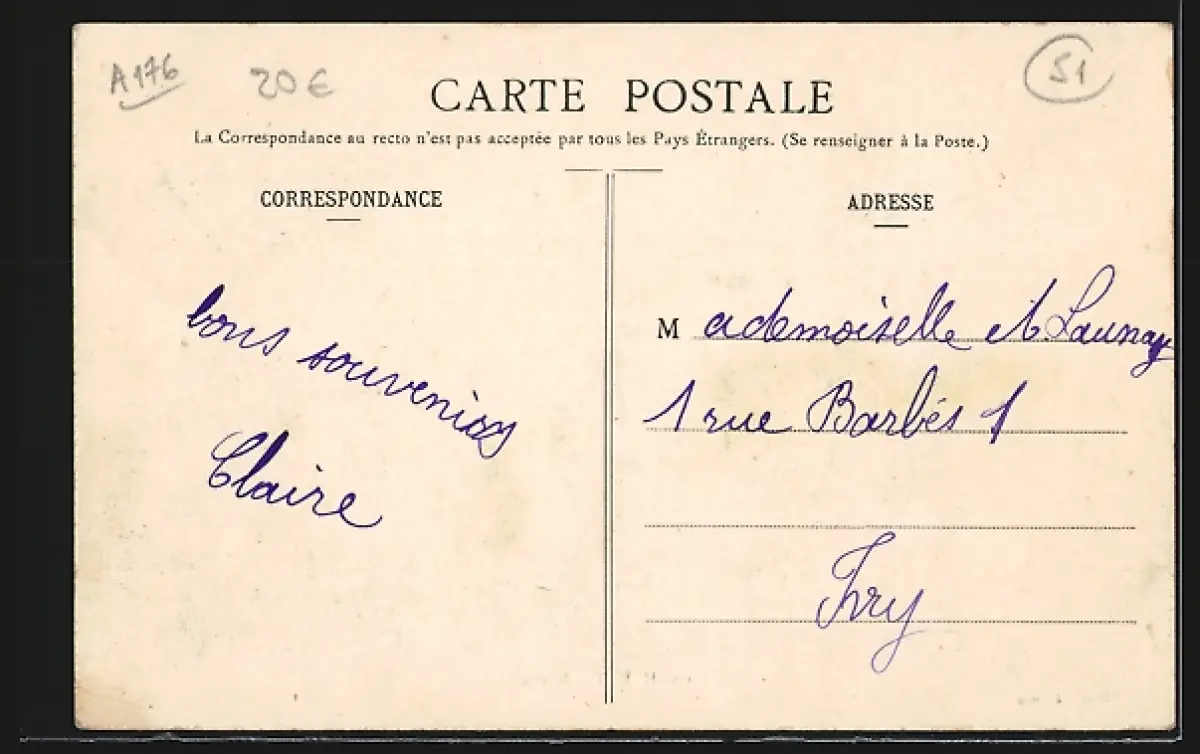 A176
20€
51
CARTE POSTALE
La Correspondance au recto n'est pas acceptée par tous les Pays Étrangers. (Se renseigner à la Poste.)
CORRESPONDANCE
bons souvenirs
Claire
ADRESSE
Mademoiselle Launay
1 rue Barbés 1
Ivry